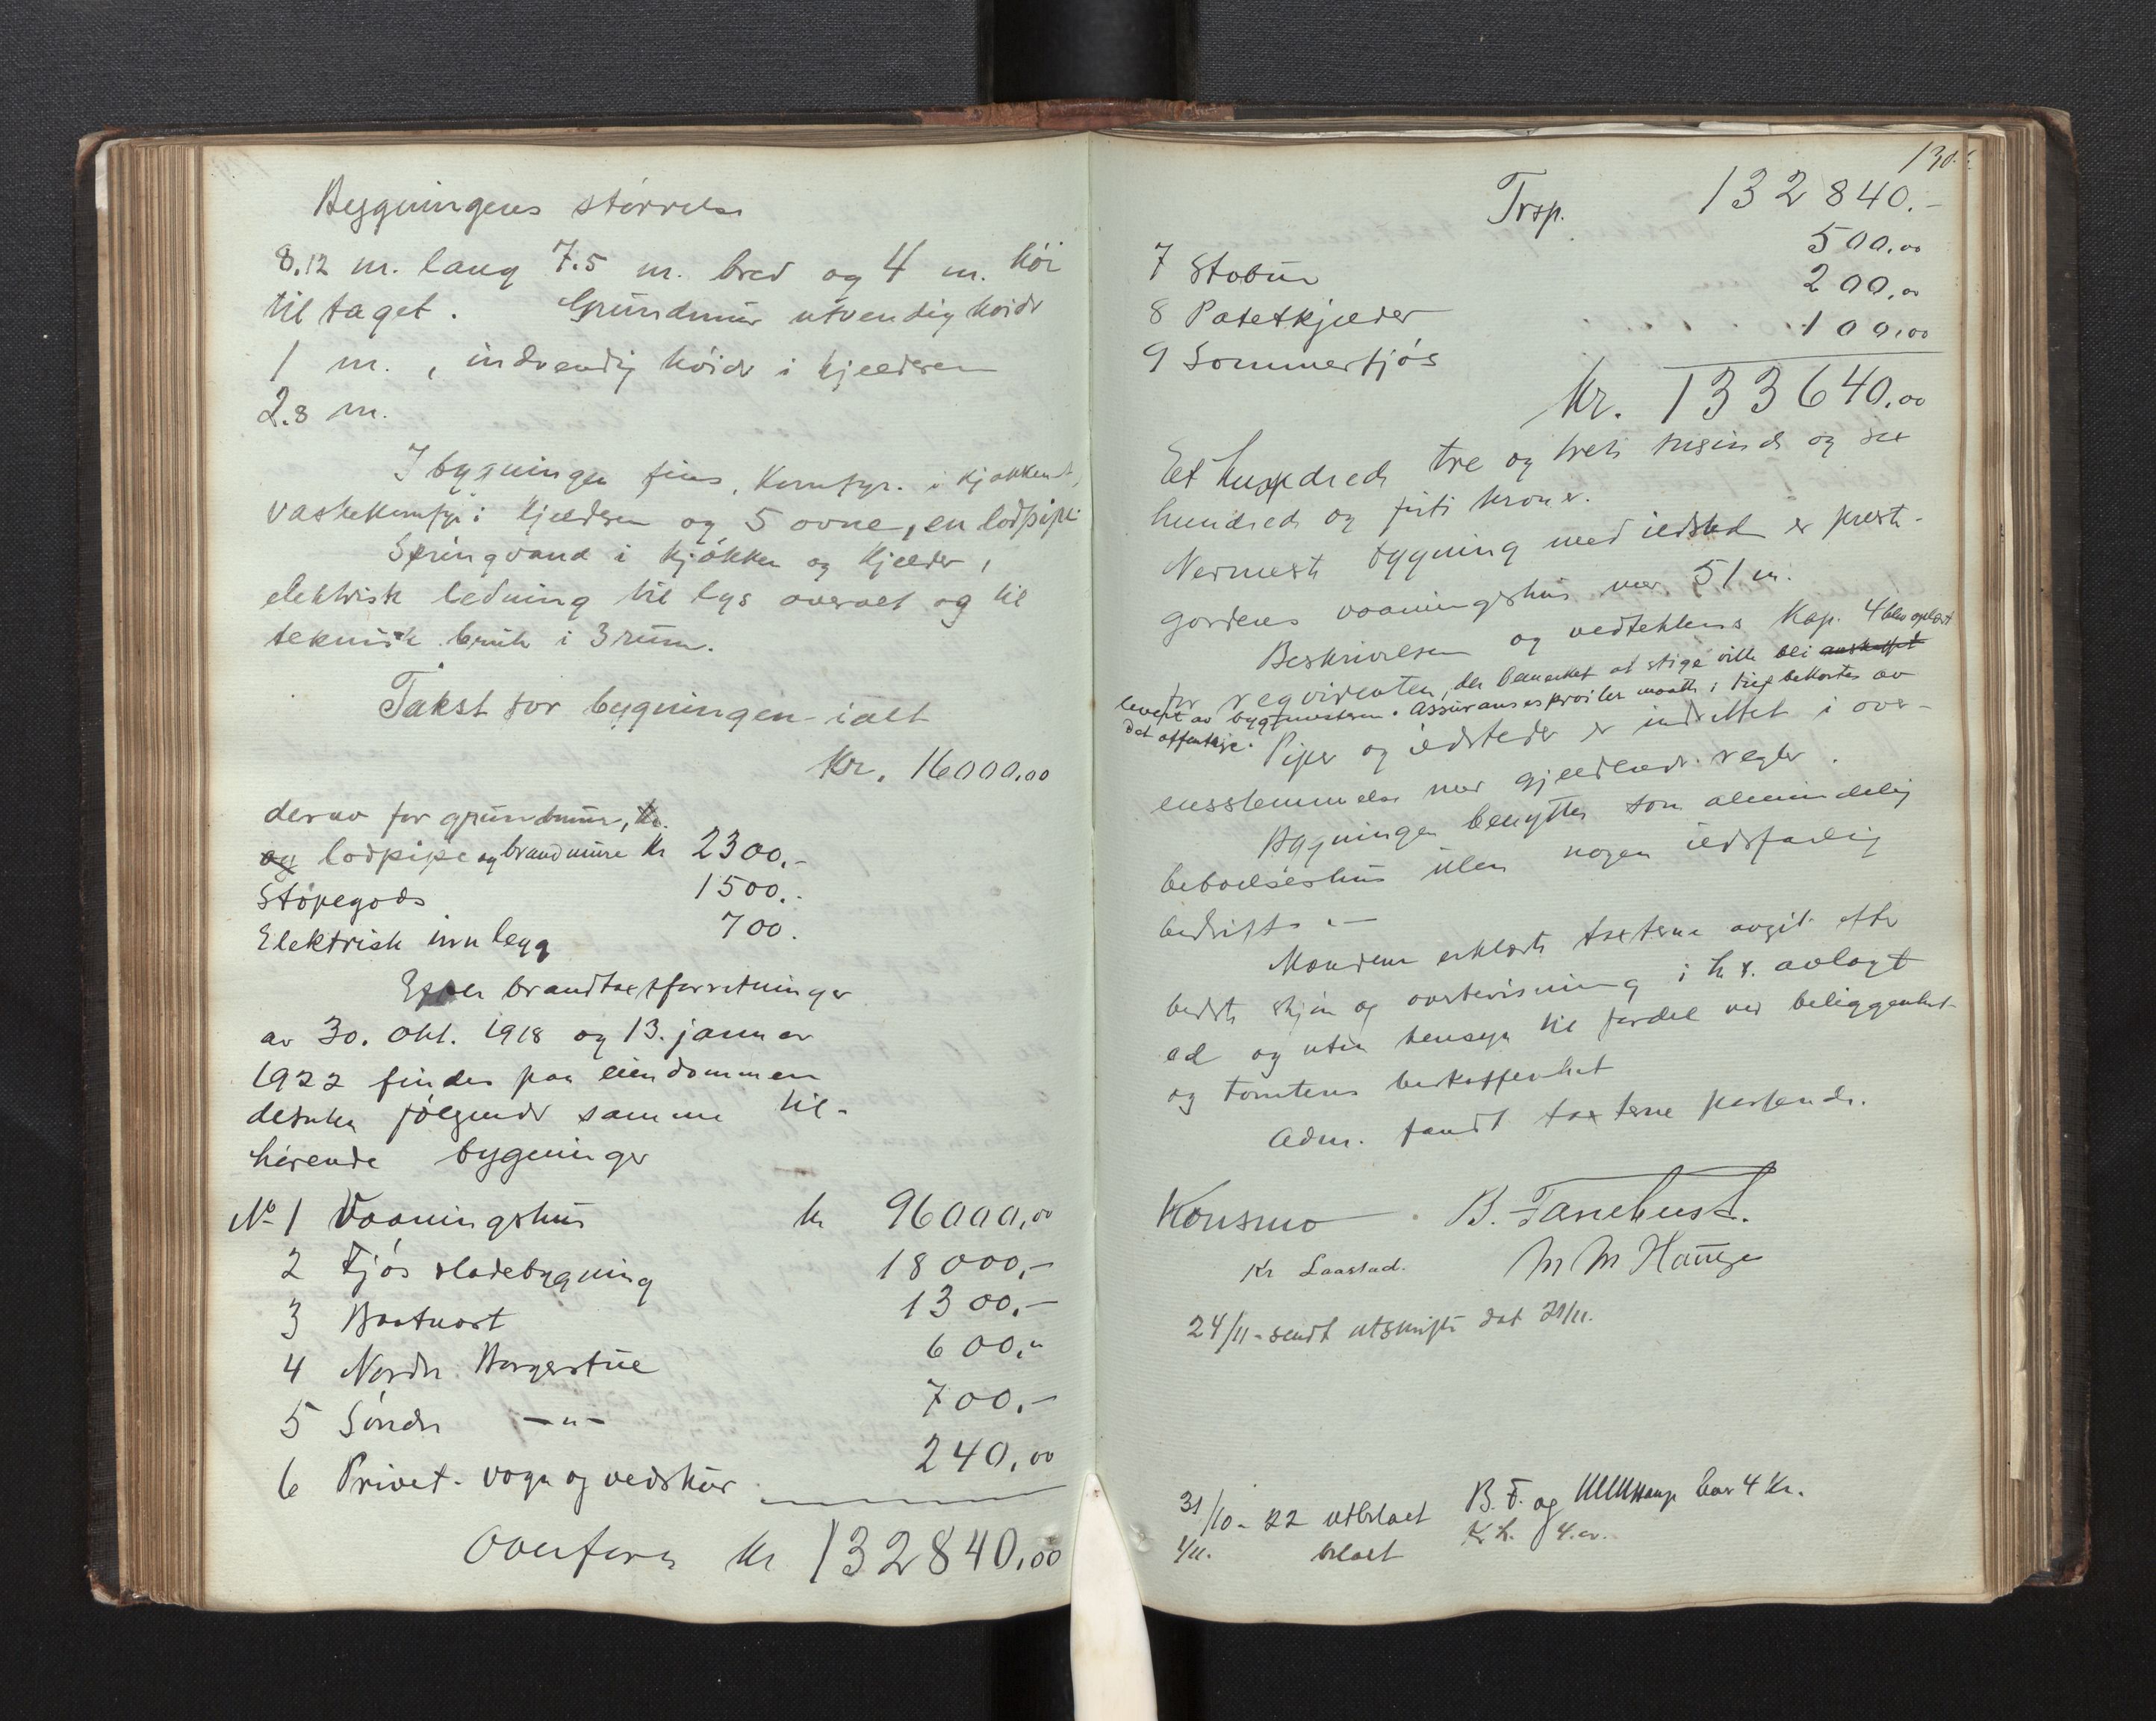 Bygningens størrelse
8.12 m. lang 7.5 m. bred og 4 m. høi
til taget. Grundmur utvendig høide
1 m., indvendig høide i kjelderen
2.8 m.
I bygningen fins, Komfyr. i kjøkkenet,
vaskekomfyr i kjelderen og 5 ovne, en lodpipe
Springvand i kjøkken og kjelder,
elektrisk ledning til lys overalt og til
teknisk bruk i 3 rum.
Takst for bygningen ialt
Kr. 16000,00
derav for grundmur, kr.
og lodpipe og brandmure kr 2300,-
Støpegods 1500.-
Elektrisk innlegg 700.
Efter brandtaxtforretninger
av 30. okt. 1918 og 13. januar
1922 findes paa eiendommen
desuten følgende samme til-
hørende bygninger
No 1 Vaaningshus kr 96000,00
2 Fjøs sladebygning 18000,-
3 Baatnaust 1300.-
4 Nordre Borgerstue 600,"
5 Søndre —"— 700.-
6 Privet- vogn og vedskur 240,00
Overføres kr 132840,00
130.
Trsp. 132840.-
7 Stobur 500,00
8 Potetkjelder 200,00
9 Sommerfjøs 100,00
Kr. 133640,00
Et hundrede tre og treti tusinde og sex
hundrede og firti kroner.
Nermeste bygning med ildsted er prest-
gardens vaaningshus mer 51 m.
Beskrivelsen og vedtektens Kap. 4 blev oplæst
for reqvirenten, der bemerket at stige vilde bli anskaffet
levert av bygmesteren. Assuransesprøiter maatte i tilf bekostes av
det offentlige.
Piper og ildsteder er indrettet i over-
ensstemmelse mer gjeldende regler.
Bygningen benyttes som almindelig
beboelseshus uten nogen ildsfarlig
bedrift. -
Mændene erklærte taxterne avgit efter
bedste skjøn og overbevisning i h. t. avlagt
ed og uten hensyn til fordel ved beliggenhet
og tomtens beskaffenhet
Adm. fandt taxterne passende.
Konsmo B. Tanehust.
Kr Laastad. M M Hauge
24/11 - sendt utskrift dat 21/11.
31/10 - 22 utbetalt B. T. og MMHauge hver 4 Kr.
1/11. betalt K. L. 4.